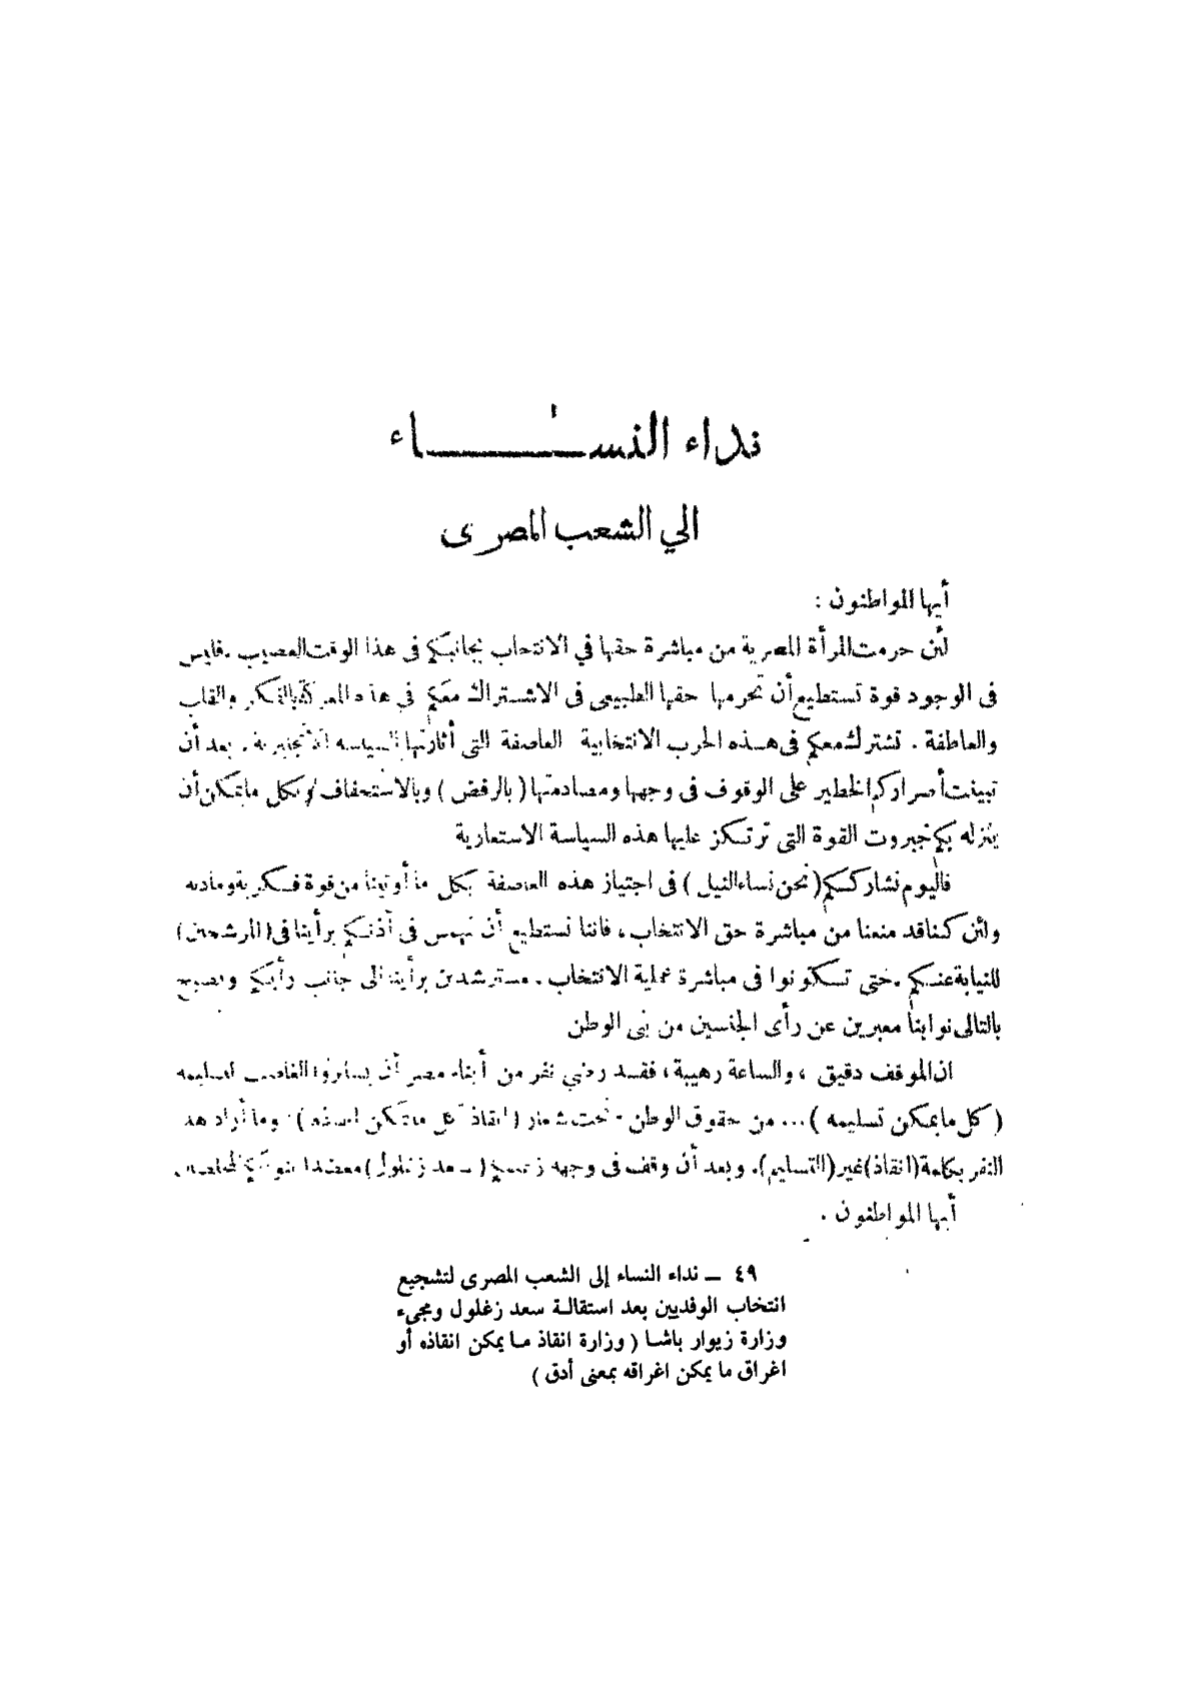 نداء النساء
الي الشعب المصرى
أيها المواطنون :
لئن حرمت المرأة المصرية من مباشرة حقها في الانتخاب بجانبكم فى هذا الوقت العصيب . فليس
فى الوجود قوة تستطيع أن تحرمها حقها الطبيعى فى الاشتراك معكم في هذه المعركة بالفكر والقلب
والعاطفة . تشترك معكم فى هذه الحرب الانتخابية العاصفة التى أثارتها السياسه الانجليزية . بعد أن
تبينت أصراركم الخطير على الوقوف فى وجهها ومصادمتها ( بالرفض ) وبالاستخفاف بكل ما يمكن أن
ينزله بكم جبروت القوة التى ترتكز عليها هذه السياسة الاستعارية
فاليوم نشارككم ( نحن نساء النيل ) فى اجتياز هذه العاصفة بكل ما أوتينا من قوة فكرية ومادية
ولئن كنا قد منعنا من مباشرة حق الانتخاب ، فاننا نستطيع أن نهمس فى آذنكم برأينا فى ( المرشحين )
للنيابة عنكم . حتى تكونوا فى مباشرة عملية الانتخاب . مسترشدين برأينا الى جانب رأيكم ويصبح
بالتالى نوابنا معبرين عن رأى الجنسين من بنى الوطن
ان الموقف دقيق ، والساعة رهيبة ، فقد رضي نفر من أبناء مصر أن الغاصب
( كل ما يمكن تسليمه ) ... من حقوق الوطن - تحت شعار ( انقاذ ما يمكن انقاذه ) وما أراد هذا
النفر بكلمة ( انقاذ ) غير ( التسليم ) . وبعد أن وقف فى وجهه زعيمكم ( سعد زغلول )
أيها المواطنون .
٤٩ ـ نداء النساء إلى الشعب المصرى لتشجيع
انتخاب الوفديين بعد استقالة سعد زغلول ومجىء
وزارة زيوار باشا ( وزارة انقاذ ما يمكن انقاذه أو
اغراق ما يمكن اغراقه بمعنى أدق )